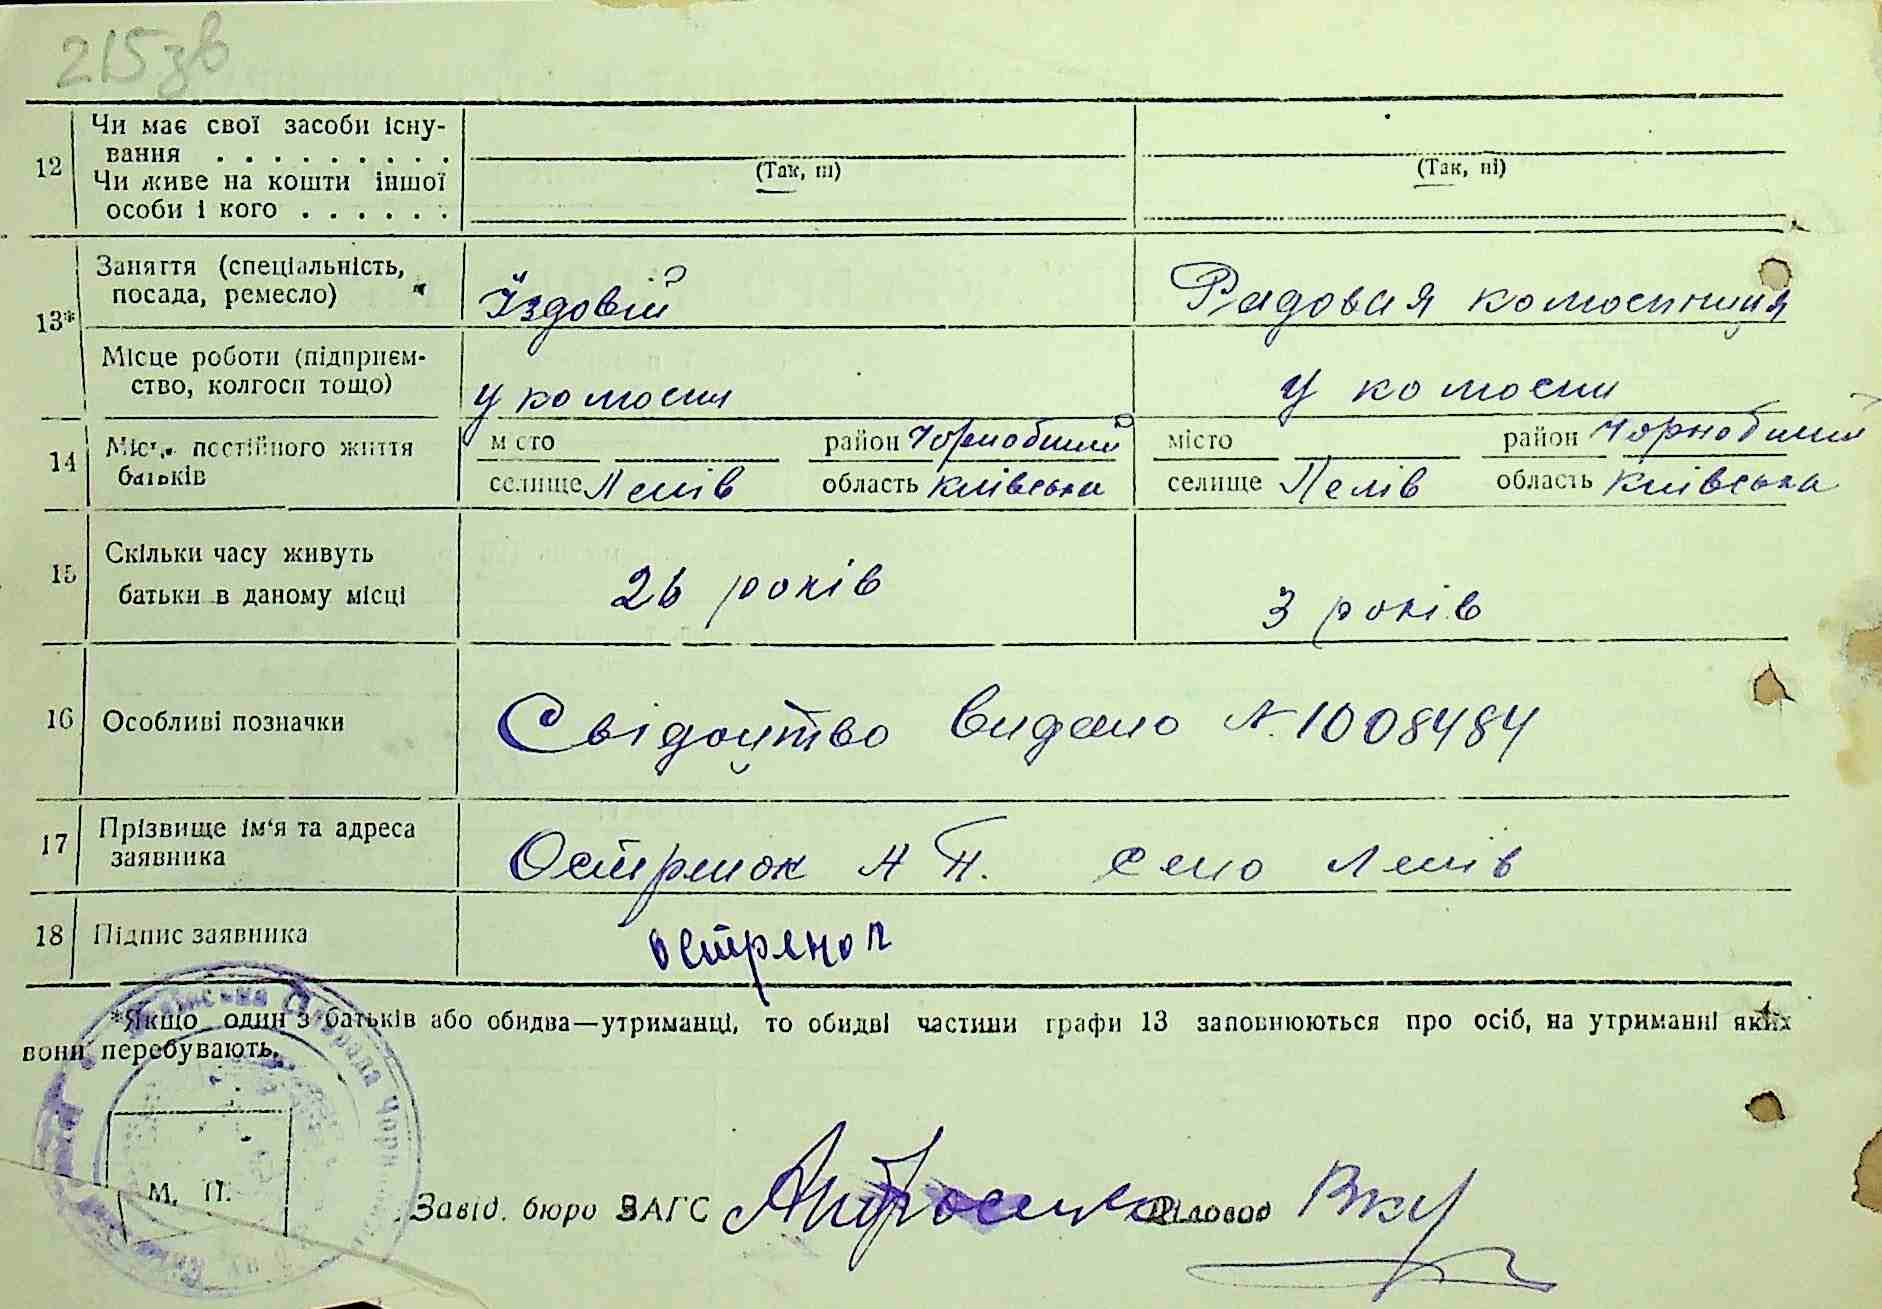 215зв
12 Чи має свої засоби існу-
вання . . . . . . . . .
(Так, ні) (Так, ні)
Чи живе на кошти іншої
особи і кого . . . . . .
13* Заняття (спеціальність,
посада, ремесло) Їздовій Рядовая колгоспниця
Місце роботи (підприєм-
ство, колгосп тощо) у колгоспі у колгоспі
14 Місце постійного життя
батьків
місто район Чорнобильский місто район Чорнобильский
селище Лелів область Київська селище Лелів область Київська
15 Скільки часу живуть
батьки в даному місці 26 років 3 років
16 Особливі позначки Свідоцтво видано №1008484
17 Прізвище ім'я та адреса
заявника Острянок А П. село Лелів
18 Підпис заявника острянок
*Якщо один з батьків або обидва—утриманці, то обидві частини графи 13 заповнюються про осіб, на утриманні яких
вони перебувають.
М. П.
Завід. бюро ЗАГС Діловод